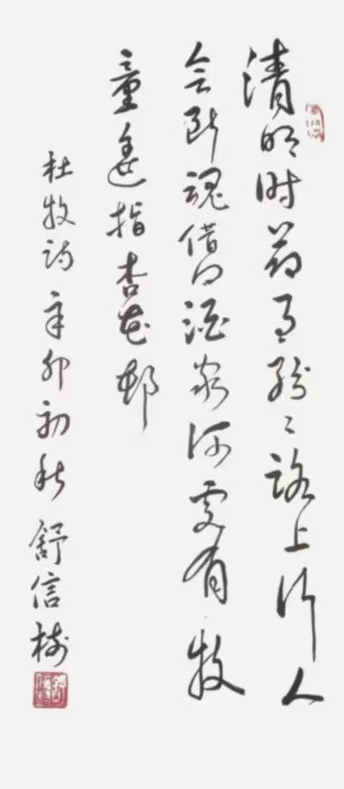 清明时节雨纷〻路上行人
欲断魂借问酒家何处有牧
童遥指杏花邨
杜牧诗 辛卯初秋 舒信树